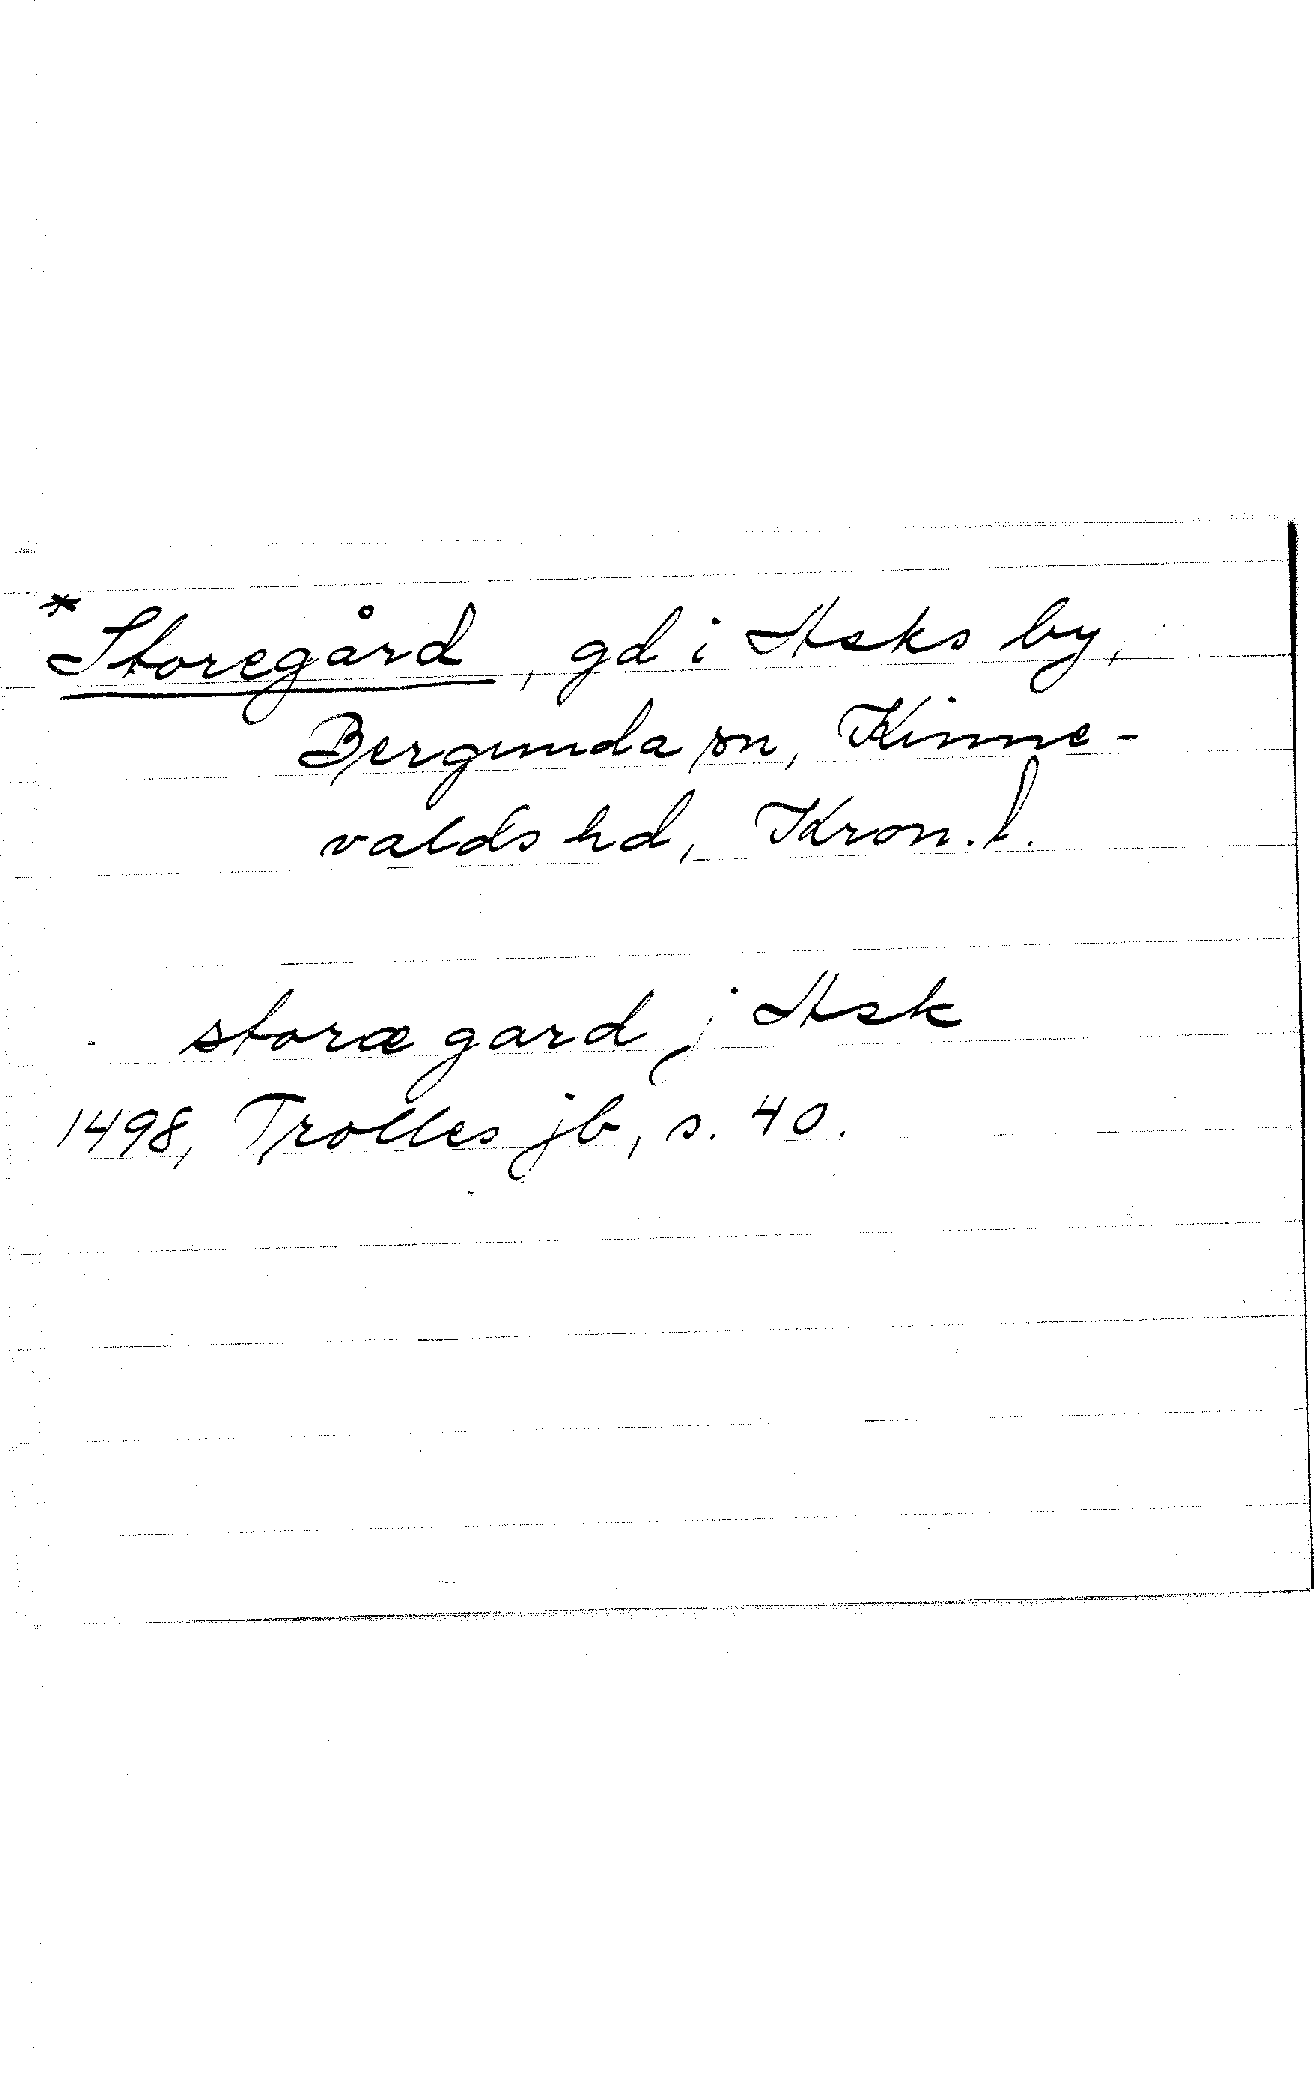 *Storegård, gd i Asks by,
Bergunda sn, Kinne-
valds hd, Kron. l.
storæ gard j Ask
1498, Trolles jb, s. 40.